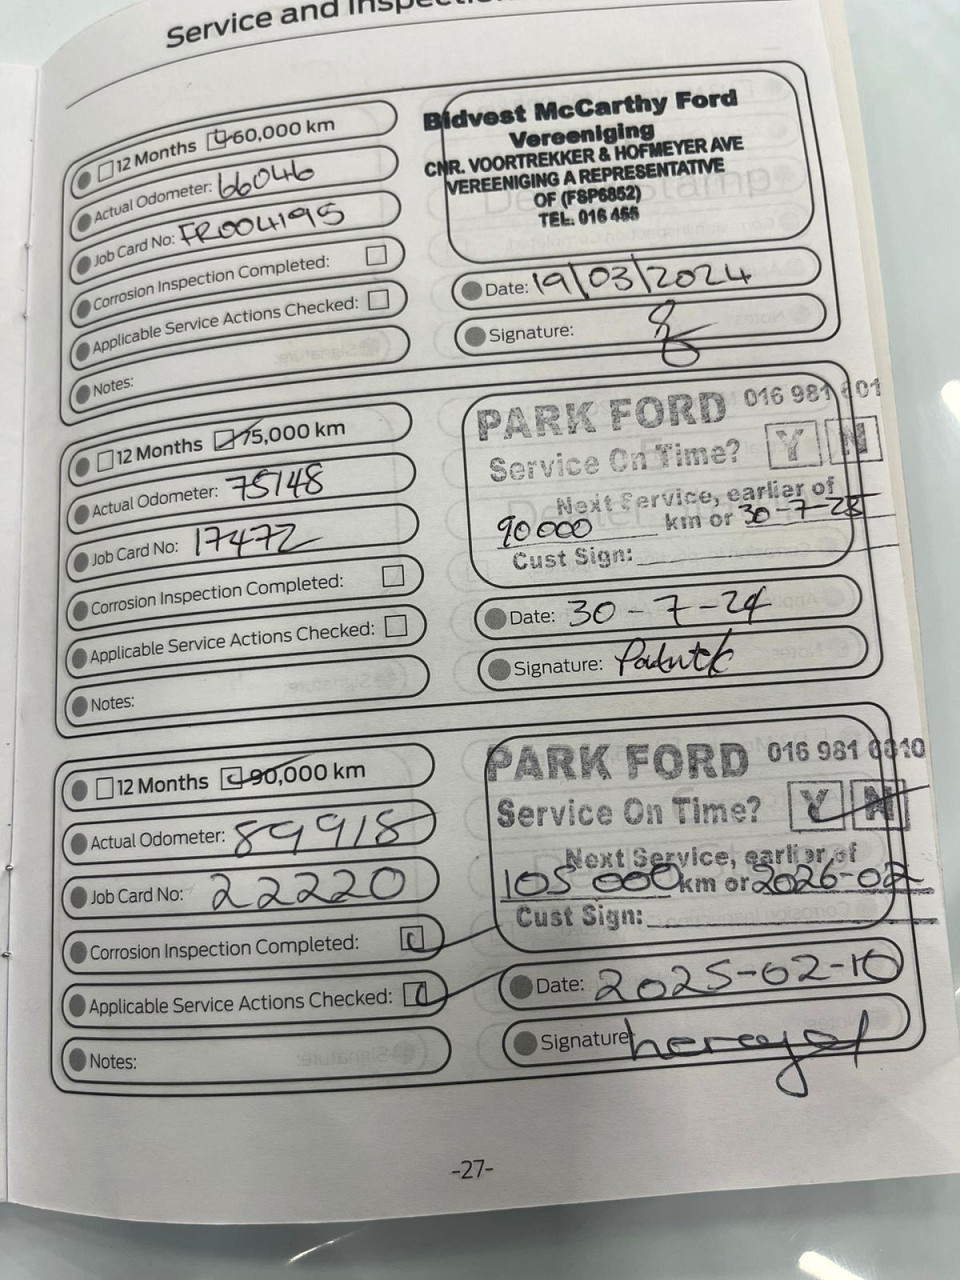 Service and Inspection
12 Months 60,000 km
Actual Odometer: 66046
Job Card No: FR004195
Corrosion Inspection Completed:
Applicable Service Actions Checked:
Notes:
Bidvest McCarthy Ford
Vereeniging
CNR. VOORTREKKER & HOFMEYER AVE
VEREENIGING A REPRESENTATIVE
OF (FSP6852)
TEL. 016 455
Date: 19/03/2024
Signature:
12 Months 75,000 km
Actual Odometer: 75148
Job Card No: 17472
Corrosion Inspection Completed:
Applicable Service Actions Checked:
Notes:
PARK FORD 016 981
Service On Time? Y N
Next Service, earlier of
90000 km or 30-7-25
Cust Sign:
Date: 30-7-24
Signature:
12 Months 90,000 km
Actual Odometer: 89918
Job Card No: 22220
Corrosion Inspection Completed:
Applicable Service Actions Checked:
Notes:
PARK FORD 016 981
Service On Time? Y N
Next Service, earlier of
105 000 km or 2026-02
Cust Sign:
Date: 2025-02-10
Signature
-27-